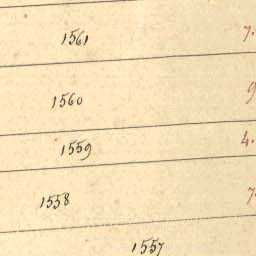 1561 7.
1560 9
1559 4.
1558 7.
1557